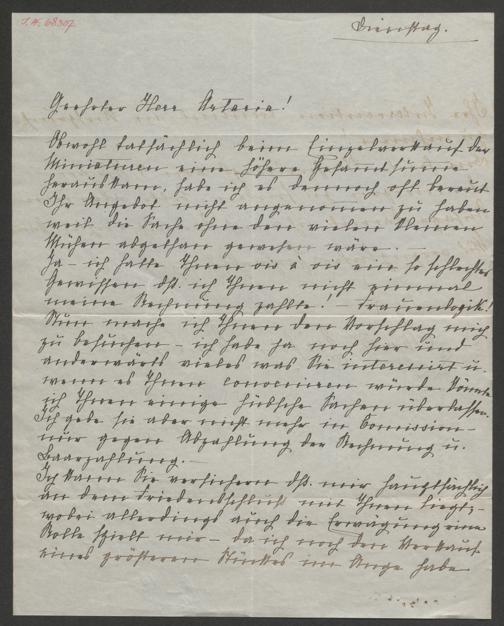 I.N. 68307
Dienstag.
Geehrter Herr Artaria!
Obwohl tatsächlich beim Einzelverkauf der
Miniaturen eine höhere Gesamtsumme
herauskam, habe ich es dennoch oft bereut
Ihr Angebot nicht angenommen zu haben
weil die Sache ohne den vielen kleinen
Mühen abgethan gewesen wäre. –
Ja – ich hatte Ihnen vis à vis ein so schlechtes
Gewissen dß. ich Ihnen nicht einmal
meine Rechnung zahlte! – Frauenlogik!
Nun mache ich Ihnen den Vorschlag mich
zu besuchen – ich habe ja noch hier und
anderwärts vieles was Sie interessirt u.
wenn es Ihnen conveniren würde könnte
ich Ihnen einige hübsche Sachen überlassen.
Ich gebe sie aber nicht mehr in Comission –
nur gegen Abzahlung der Rechnung u.
Baarzahlung. –
Ich kann Sie versichern dß. mir hauptsächlich
an dem Friedensschluß mit Ihnen liegt, –
wobei allerdings auch die Erwägung eine
Rolle spielt mir – da ich noch den Verkauf
eines größeren Stückes im Auge habe